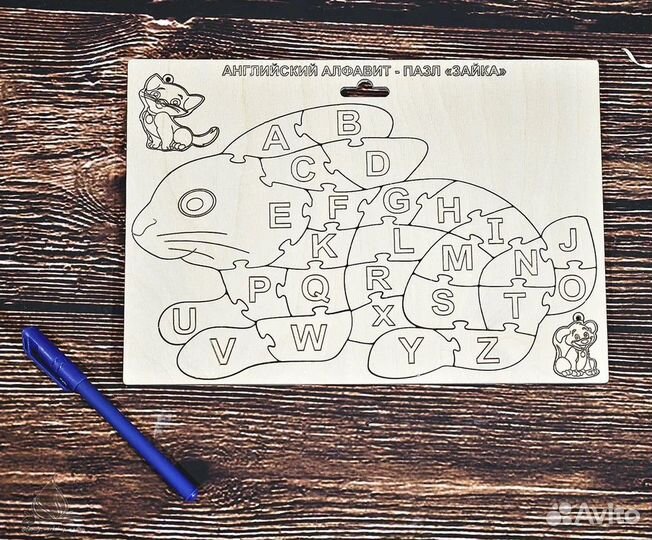 АНГЛИЙСКИЙ АЛФАВИТ - ПАЗЛ «ЗАЙКА»
A B
C D
E F G H I J
K L M N O
P Q R S T
U V W X Y Z
Avito